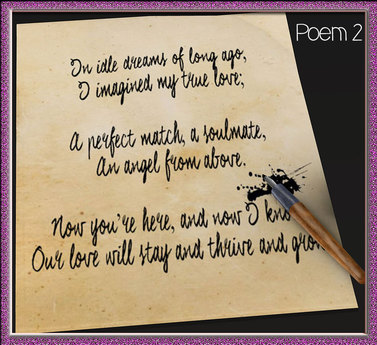 Poem 2
In idle dreams of long ago,
I imagined my true love;
A perfect match, a soulmate,
An angel from above.
Now you're here, and now I know
Our love will stay and thrive and grow